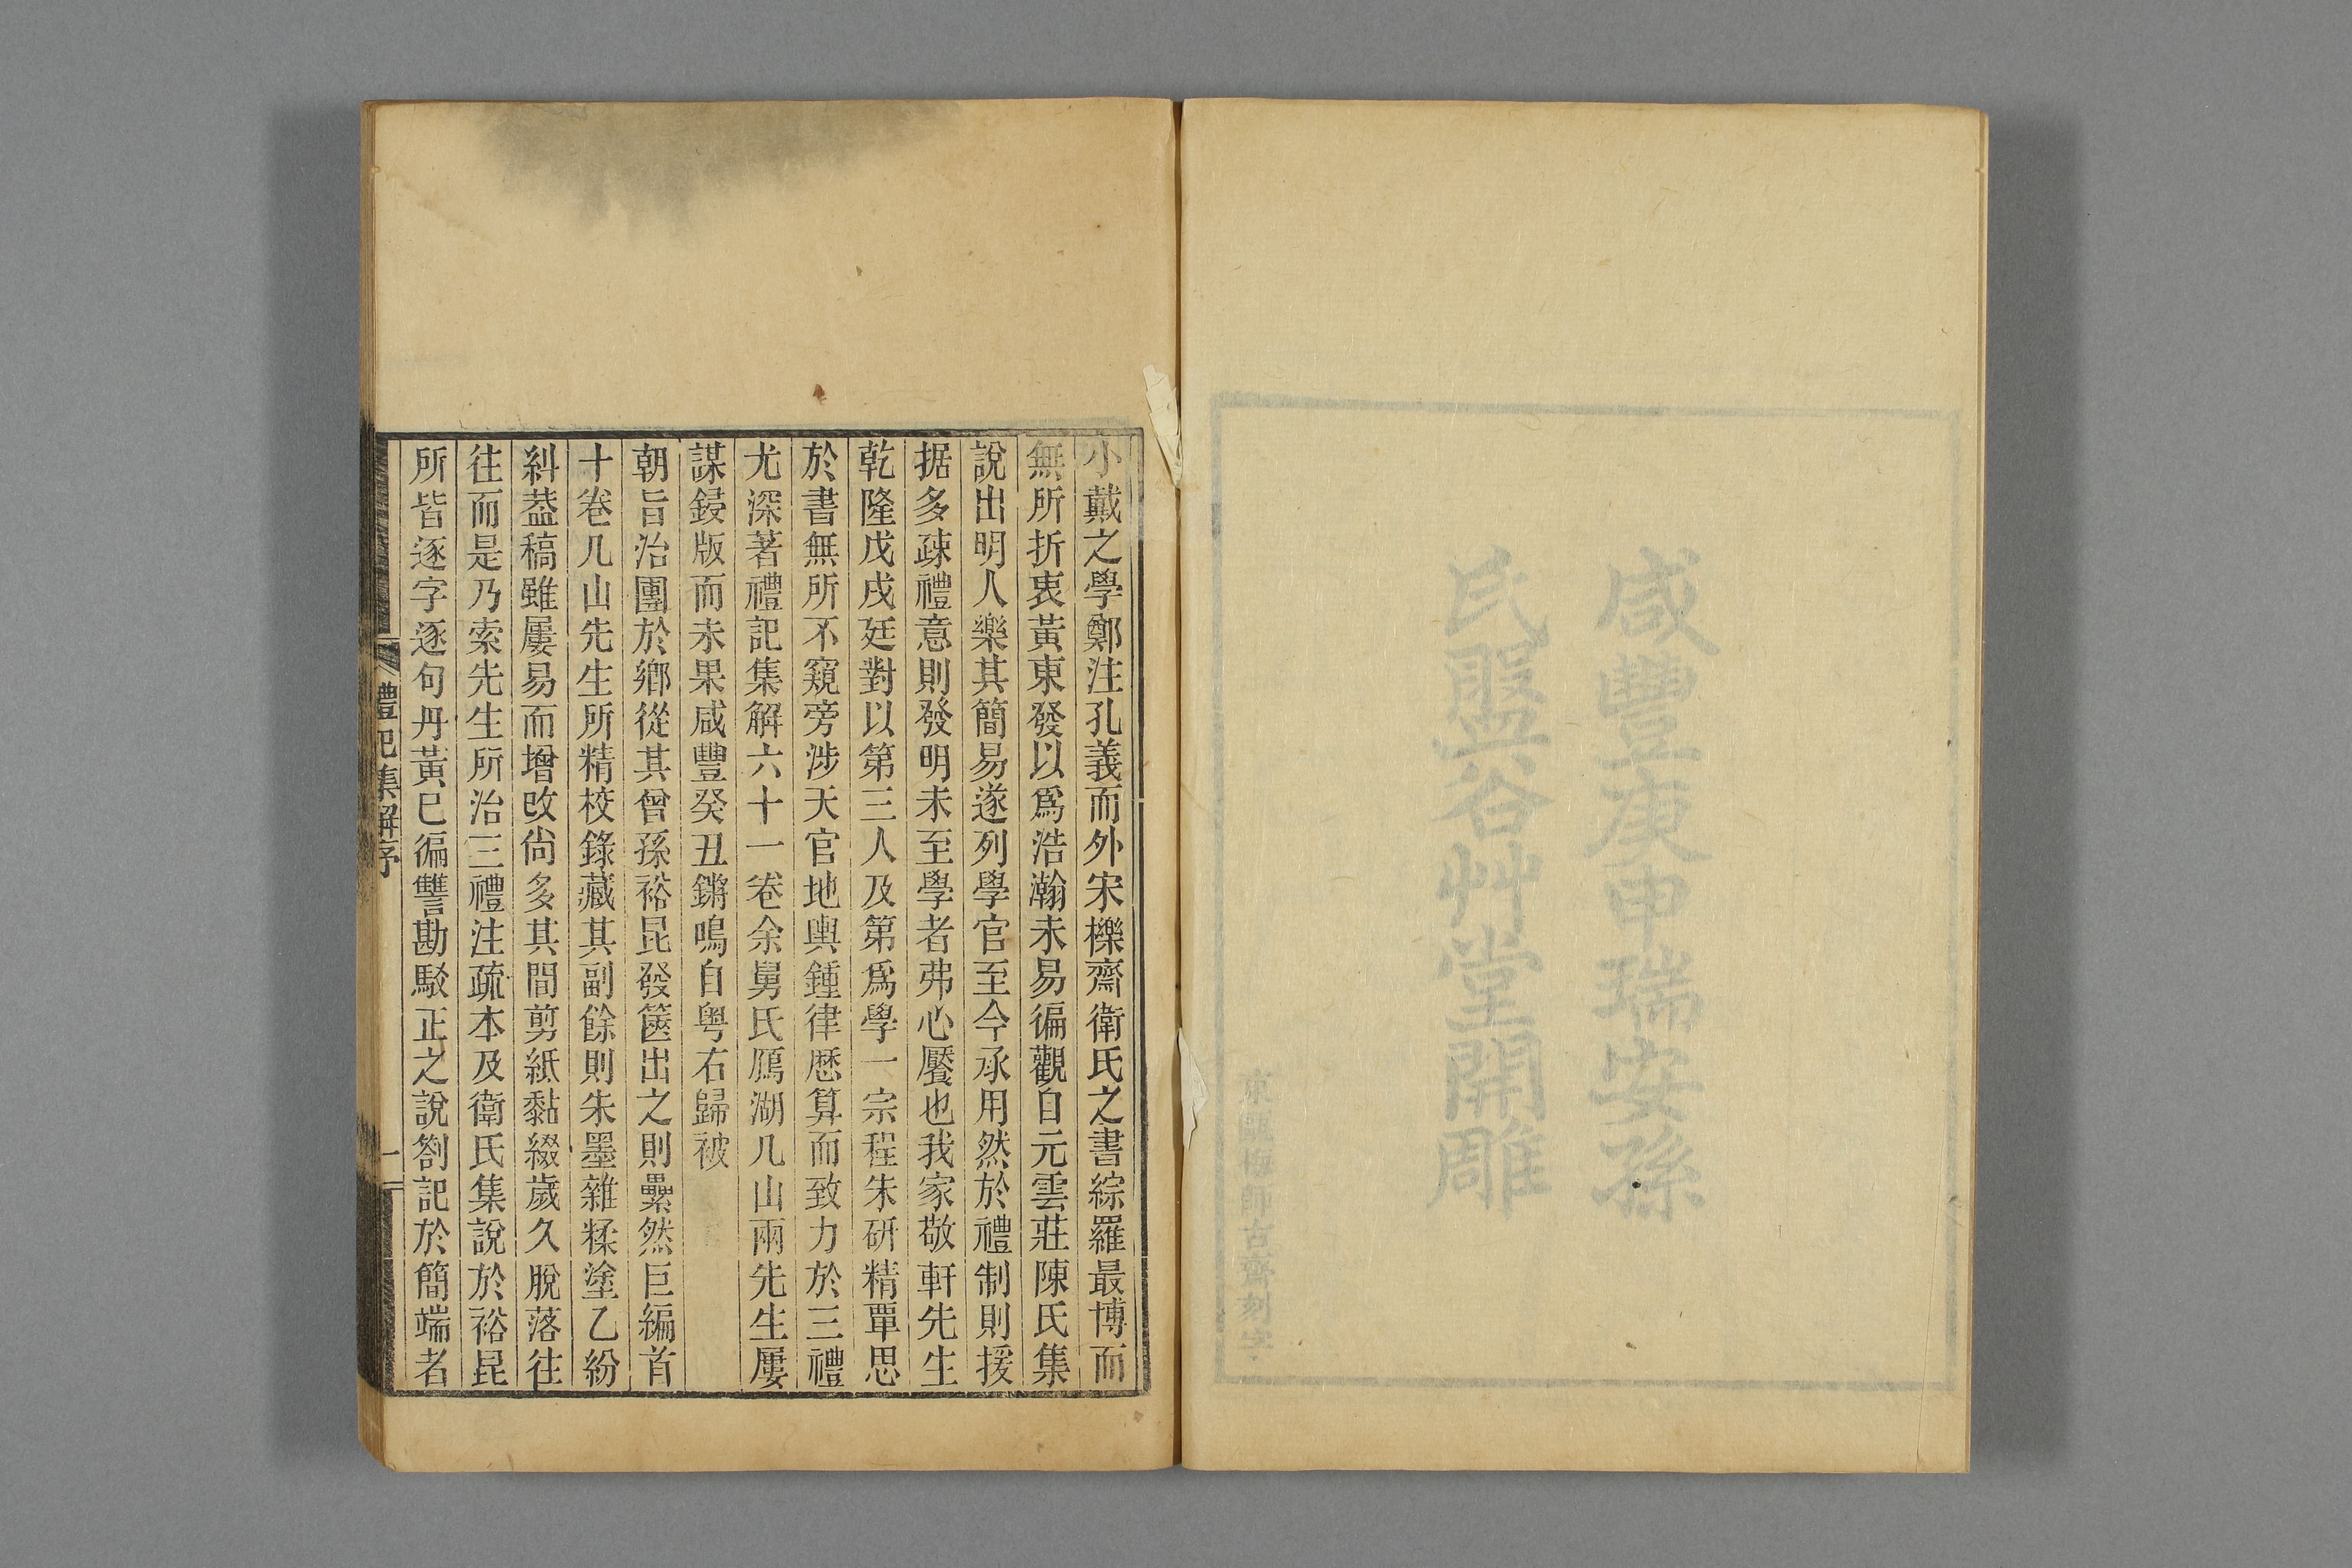 咸豐庚申瑞安孫
氏盤谷艸堂開雕
東甌梅師古齋刻字
小戴之學鄭注孔義而外宋櫟齋衛氏之書綜羅最博而
無所折衷黃東發以爲浩瀚未易徧觀自元雲莊陳氏集
說出明人樂其簡易遂列學官至今承用然於禮制則援
据多疎禮意則發明未至學者弗心饜也我家敬軒先生
乾隆戊戌廷對以第三人及第爲學一宗程朱研精覃思
於書無所不窺旁涉天官地輿鍾律厯算而致力於三禮
尤深著禮記集解六十一卷余舅氏鴈湖几山兩先生屢
謀鋟版而未果咸豐癸丑鏘鳴自粤右歸被
朝旨治團於鄉從其曾孫裕昆發篋出之則纍然巨編首
十卷几山先生所精校錄藏其副餘則朱墨雜糅塗乙紛
糾葢稿雖屢易而增改尙多其間剪紙黏綴歲久脫落往
往而是乃索先生所治三禮注疏本及衛氏集說於裕昆
所皆逐字逐句丹黃已徧讐勘駁正之說劄記於簡端者
禮記集解序
一